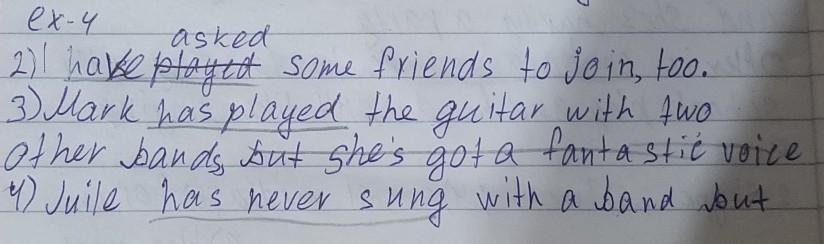 ex-4
asked
2) I have played some friends to join, too.
3) Mark has played the guitar with two
other bands, but she's got a fantastic voice
4) Juile has never sung with a band but